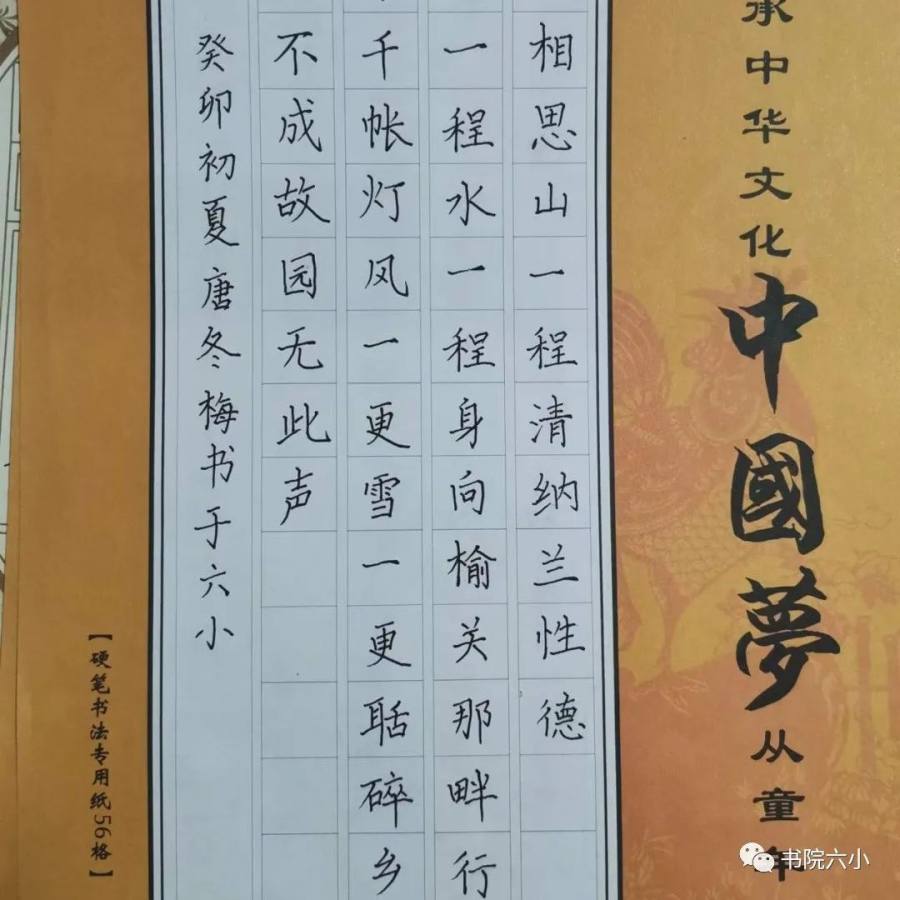 承中华文化
中國夢
从童年
相思山一程清纳兰性德
一程水一程身向榆关那畔行
千帐灯风一更雪一更聒碎乡
不成故园无此声
癸卯初夏唐冬梅书于六小
【硬笔书法专用纸56格】
书院六小